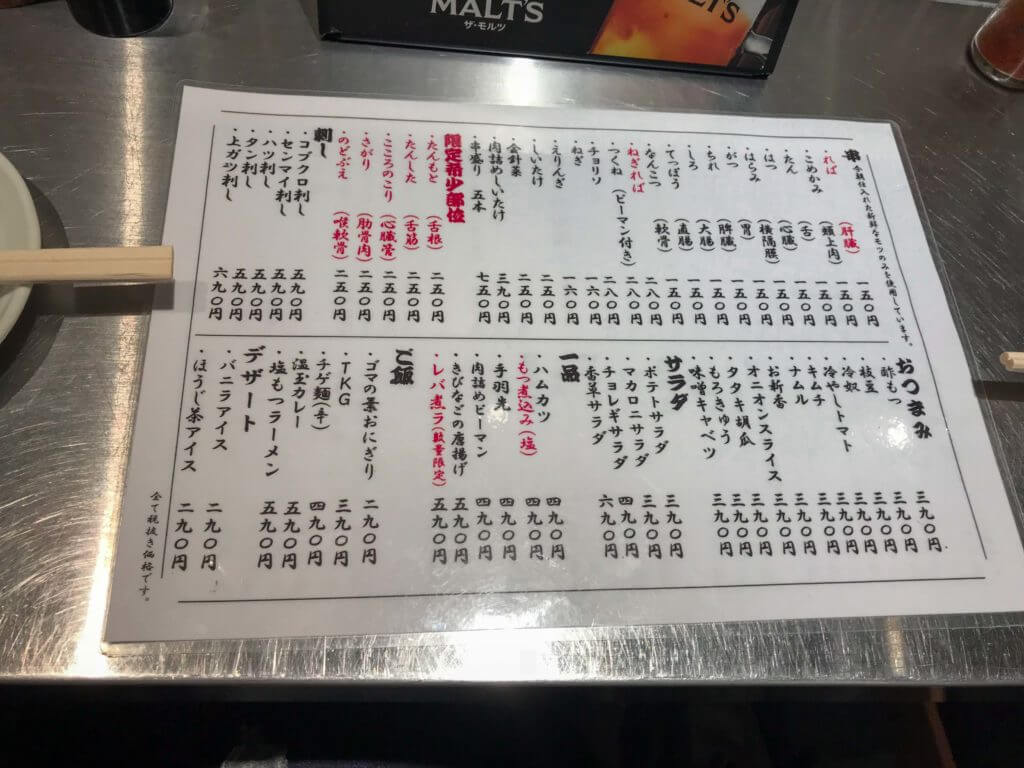 MALT'S
ザ・モルツ
LT'S
串 今朝仕入れた新鮮なモツのみを使用しています。
・れば（肝臓） 一五〇円
・こめかみ（頭上肉） 一五〇円
・たん（舌） 一五〇円
・はつ（心臓） 一五〇円
・はらみ（横隔膜） 一五〇円
・がつ（胃） 一五〇円
・ちれ（脾臓） 一五〇円
・しろ（大腸） 一五〇円
・てっぽう（直腸） 一五〇円
・なんこつ（軟骨） 一五〇円
・ねぎれば 二八〇円
・つくね（ピーマン付き） 二八〇円
・チョリソ 二八〇円
・ねぎ 一六〇円
・えりんぎ 一六〇円
・しいたけ 二五〇円
・金針菜 二五〇円
・肉詰めしいたけ 三九〇円
・串盛り 五本 七五〇円
限定希少部位
・たんもと（舌根） 二五〇円
・たんした（舌筋） 二五〇円
・こころのこり（心臓管） 二五〇円
・さがり（肋骨肉） 二五〇円
・のどぶえ（喉軟骨） 二五〇円
刺し
・コブクロ刺し 五九〇円
・センマイ刺し 五九〇円
・ハツ刺し 五九〇円
・タン刺し 五九〇円
・上ガツ刺し 六九〇円
おつまみ
・酢もつ 三九〇円
・枝豆 三九〇円
・冷奴 三九〇円
・冷やしトマト 三九〇円
・キムチ 三九〇円
・ナムル 三九〇円
・お新香 三九〇円
・オニオンスライス 三九〇円
・タタキ胡瓜 三九〇円
・もろきゅう 三九〇円
・味噌キャベツ 三九〇円
サラダ
・ポテトサラダ 三九〇円
・マカロニサラダ 三九〇円
・チョレギサラダ 四九〇円
・香草サラダ 六九〇円
一品
・ハムカツ 四九〇円
・もつ煮込み（塩） 四九〇円
・手羽先 四九〇円
・肉詰めピーマン 四九〇円
・きびなごの唐揚げ 五九〇円
・レバ煮ラ（数量限定） 五九〇円
ご飯
・ゴマの葉おにぎり 二九〇円
・TKG 三九〇円
・チゲ麺（辛） 四九〇円
・温玉カレー 五九〇円
・塩もつラーメン 五九〇円
デザート
・バニラアイス 二九〇円
・ほうじ茶アイス 二九〇円
全て税抜き価格です。